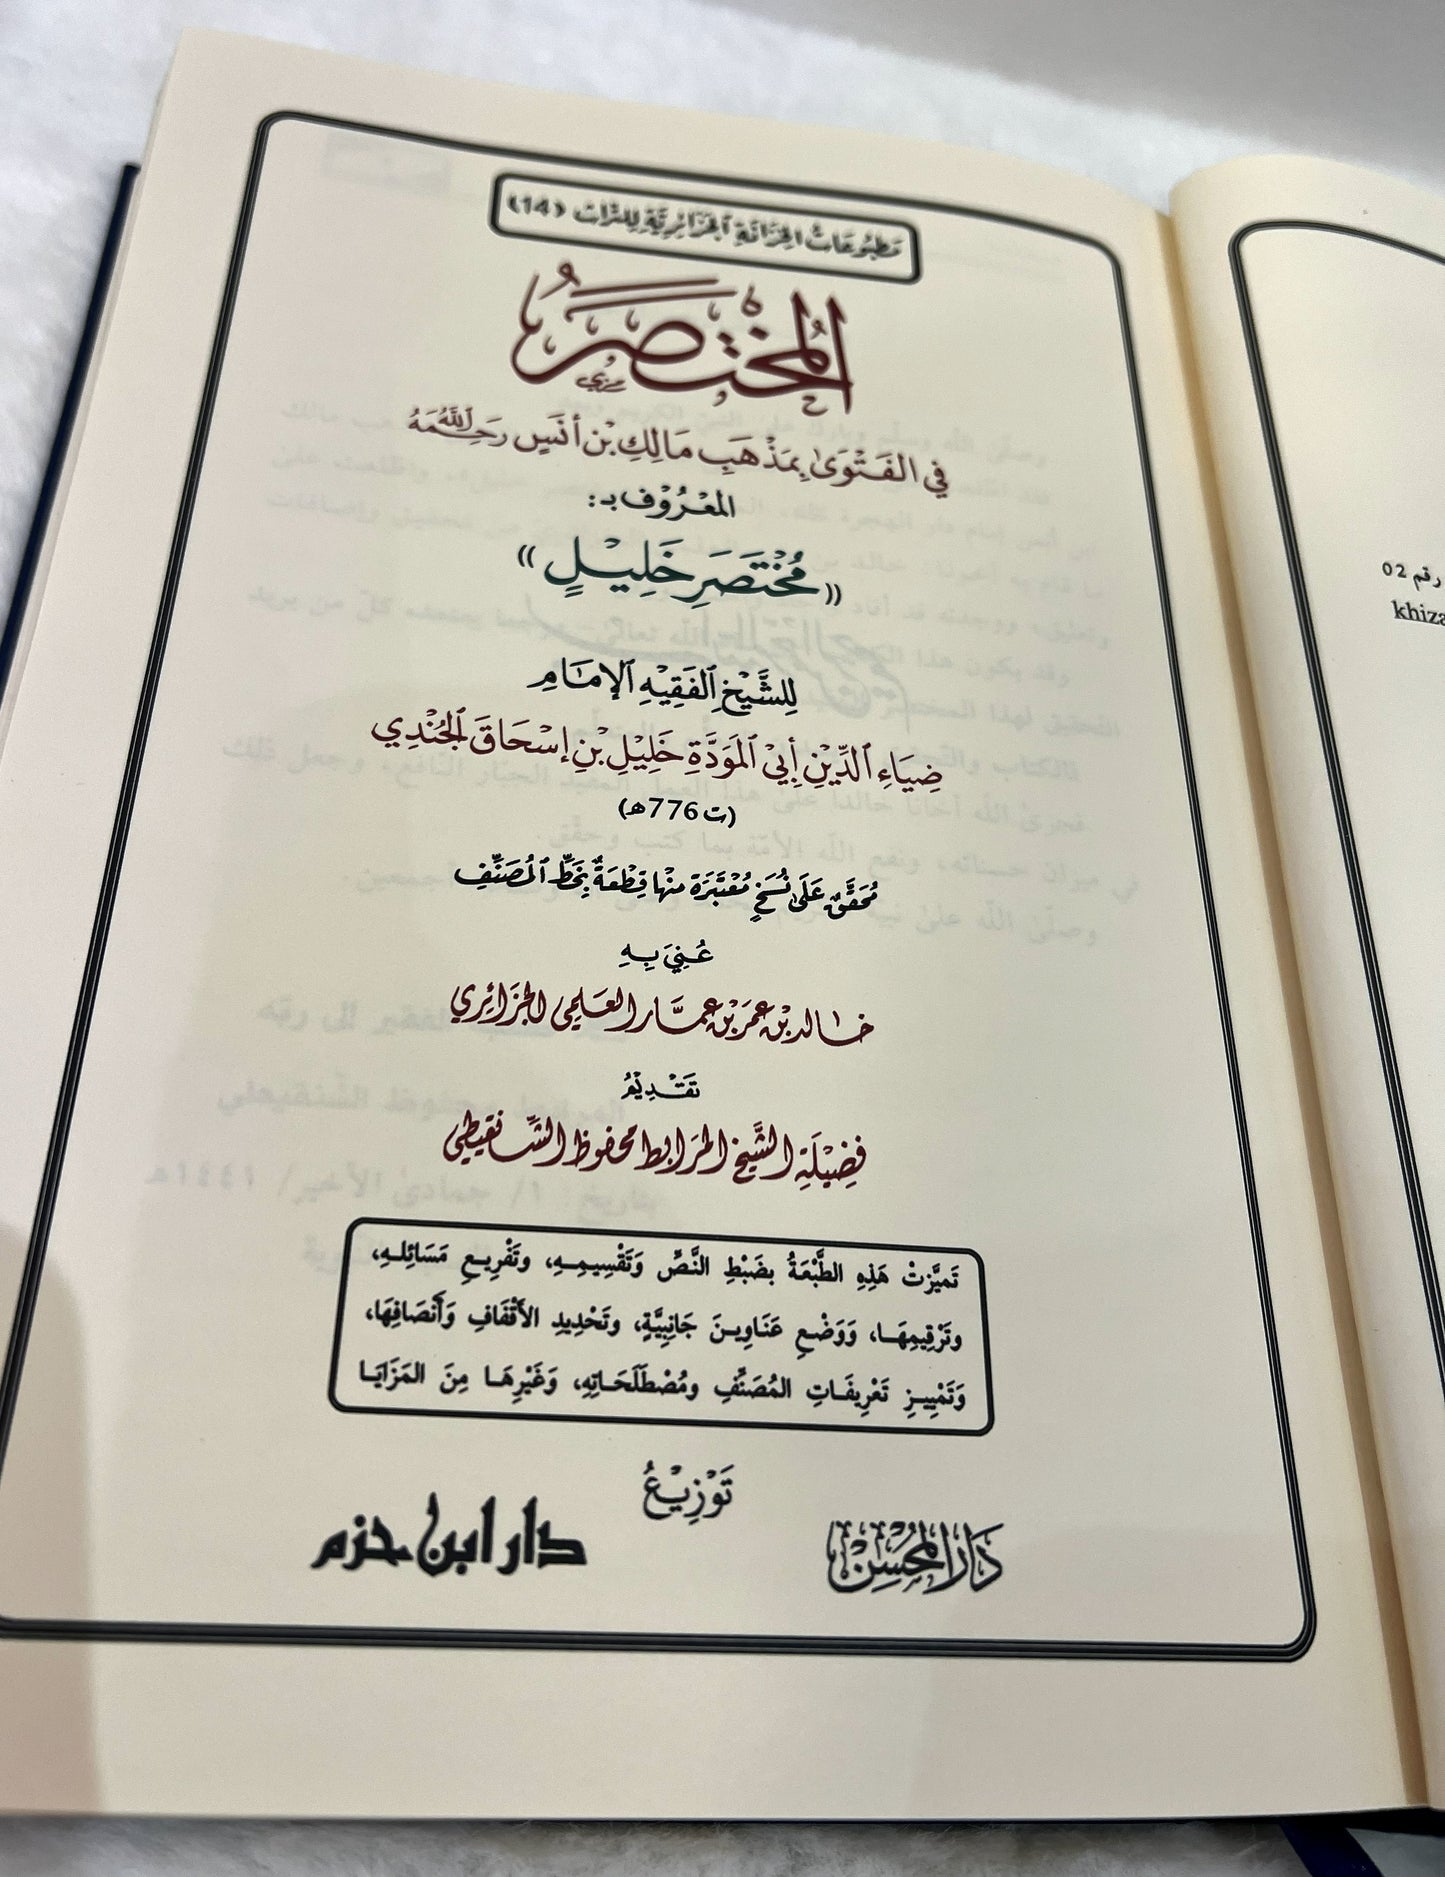 مَطْبُوعَاتُ الخِزَانَةِ الجَزَائِرِيَّةِ لِلتُّرَاثِ (14)
المُخْتَصَرُ
فِي الفَتْوَىٰ بِمَذْهَبِ مَالِكِ بْنِ أَنَسٍ رَحِمَهُ اللَّهُ
المَعْرُوْفُ بـ:
«مُخْتَصَرِ خَلِيْلٍ»
لِلشَّيْخِ الفَقِيْهِ الإِمَامِ
ضِيَاءِ الدِّيْنِ أَبِيْ المَوَدَّةِ خَلِيْلِ بْنِ إِسْحَاقَ الجُنْدِي
(ت 776هـ)
مُحَقَّقٌ عَلَى نُسَخٍ مُعْتَبَرَةٍ مِنْهَا قِطْعَةٌ بِخَطِّ المُصَنِّفِ
عُنِيَ بِهِ
خالد بْن عُمَرَ بْن عمَّار العَلَمِي الجَزَائِرِي
تَقْدِيْمُ
فَضِيْلَةِ الشَّيْخِ المُرَابِط محفوظ الشَّنْقِيطِي
تَميَّزتْ هَذِهِ الطَّبْعَةُ بِضَبْطِ النَّصِّ وَتَقْسِيمِهِ، وتَفْرِيعِ مَسَائِلهِ،
وتَرْقِيمِهَا، وَوَضْعِ عَنَاوِينَ جَانِبِيَّةٍ، وتَحْدِيدِ الأَقْفَافِ وَأَنْصَافِهَا،
وَتَمْيِيزِ تَعْرِيفَاتِ المُصَنِّفِ ومُصْطَلَحَاتِهِ، وَغَيْرِهَا مِنَ المَزَايَا
تَوْزِيْعُ
دَارُ المُحْسِنْ
دار ابن حزم
رقم 02